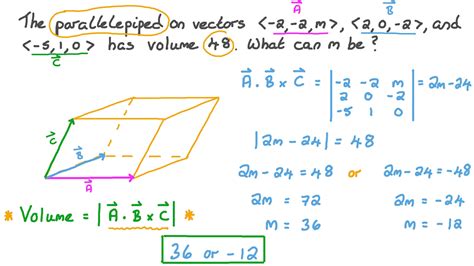 The parallelepiped on vectors <-2,-2,m>, <2,0,-2>, and
<-5,1,0> has volume 48. What can m be?
A⃗
B⃗
C⃗
A⃗ . B⃗ x C⃗ = | -2 -2 m | = 2m-24
2 0 -2
-5 1 0
|2m-24| = 48
2m-24 = 48 or 2m-24 = -48
2m = 72 2m = -24
m = 36 m = -12
C⃗
B⃗
A⃗
* Volume = | A⃗ . B⃗ x C⃗ | *
36 or -12